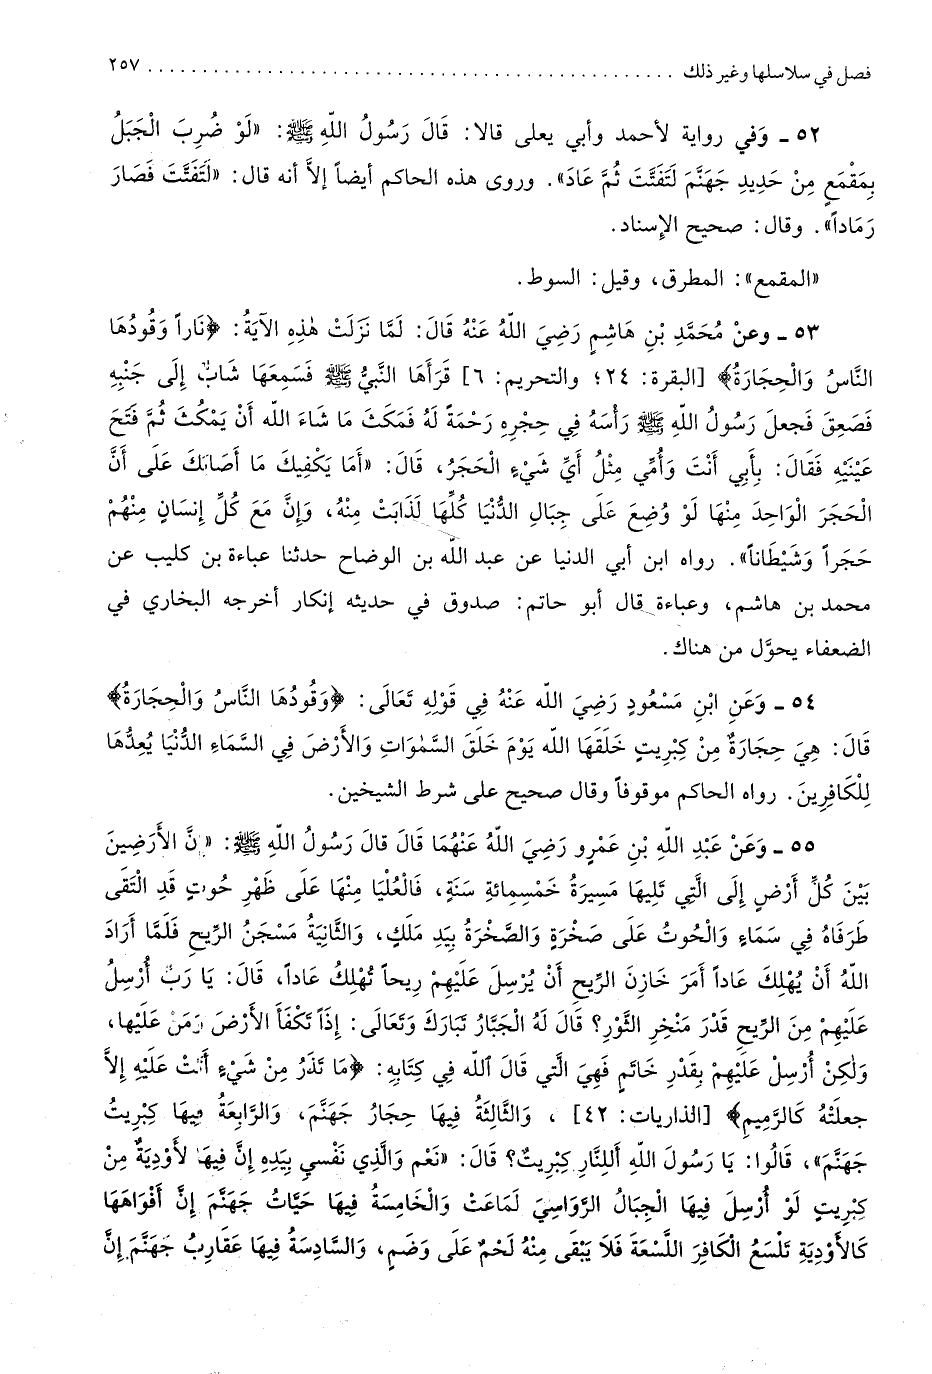 فصل في سلاسلها وغير ذلك ............................................................ ٢٥٧
٥٢ ـ وَفي رواية لأحمد وأبي يعلى قالا: قَالَ رَسُولُ اللّهِ ﷺ: «لَوْ ضُرِبَ الْجَبَلُ
بِمَقْمَعٍ مِنْ حَدِيدِ جَهَنَّمَ لَتَفَتَّتَ ثُمَّ عَادَ». وروى هذه الحاكم أيضاً إلاَّ أنه قال: «لَتَفَتَّتَ فَصَارَ
رَمَاداً». وقال: صحيح الإسناد.
«المقمع»: المطرق، وقيل: السوط.
٥٣ ـ وعنْ مُحَمَّدِ بْنِ هَاشِمٍ رَضِيَ اللّهُ عَنْهُ قَالَ: لَمَّا نَزَلَتْ هٰذِهِ الآيَةُ: ﴿نَاراً وَقُودُهَا
النَّاسُ وَالْحِجَارَةُ﴾ [البقرة: ٢٤؛ والتحريم: ٦] قَرَأَهَا النَّبيُّ ﷺ فَسَمِعَهَا شَابٌّ إِلَى جَنْبِهِ
فَصَعِقَ فَجعلَ رَسُولُ اللّهِ ﷺ رَأْسَهُ فِي حِجْرِهِ رَحْمَةً لَهُ فَمَكَثَ مَا شَاءَ الله أَنْ يَمْكُثَ ثُمَّ فَتَحَ
عَيْنَيْهِ فَقَالَ: بِأَبِي أَنْتَ وَأُمِّي مِثْلُ أَيِّ شَيْءٍ الْحَجَرُ، قَالَ: «أَمَا يَكْفِيكَ مَا أَصَابَكَ عَلَى أَنَّ
الْحَجَرَ الْوَاحِدَ مِنْهَا لَوْ وُضِعَ عَلَى جِبَالِ الدُّنْيَا كُلِّهَا لَذَابَتْ مِنْهُ، وَإِنَّ مَعَ كُلِّ إِنسَانٍ مِنْهُمْ
حَجَراً وَشَيْطَاناً». رواه ابن أبي الدنيا عن عبد الله بن الوضاح حدثنا عباءة بن كليب عن
محمد بن هاشم، وعباءة قال أبو حاتم: صدوق في حديثه إنكار أخرجه البخاري في
الضعفاء يحوَّل من هناك.
٥٤ ـ وَعَنِ ابْنِ مَسْعُودٍ رَضِيَ اللّه عَنْهُ فِي قَوْلِهِ تَعَالَى: ﴿وَقُودُهَا النَّاسُ وَالْحِجَارَةُ﴾
قَالَ: هِيَ حِجَارَةٌ مِنْ كِبْرِيتٍ خَلَقَهَا اللّه يَوْمَ خَلَقَ السَّمٰوَاتِ وَالأَرْضَ فِي السَّمَاءِ الدُّنْيَا يُعِدُّهَا
لِلْكَافِرِينَ. رواه الحاكم موقوفاً وقال صحيح على شرط الشيخين.
٥٥ ـ وَعَنْ عَبْدِ اللّهِ بْنِ عَمْرٍو رَضِيَ اللّهُ عَنْهُمَا قَالَ قالَ رَسُولُ اللّهِ ﷺ: «إِنَّ الأَرَضِينَ
بَيْنَ كُلِّ أَرْضٍ إِلَى الَّتِي تَلِيهَا مَسِيرَةُ خَمْسِمِائةِ سَنَةٍ، فَالْعُلْيَا مِنْهَا عَلَى ظَهْرِ حُوتٍ قَدِ الْتَقَى
طَرَفَاهُ فِي سَمَاءٍ وَالْحُوتُ عَلَى صَخْرَةٍ وَالصَّخْرَةُ بِيَدِ مَلَكٍ، وَالثَّانِيَةُ مَسْجَنُ الرِّيحِ فَلَمَّا أَرَادَ
اللّهُ أَنْ يُهْلِكَ عَاداً أَمَرَ خَازِنَ الرِّيحِ أَنْ يُرْسِلَ عَلَيْهِمْ رِيحاً تُهْلِكُ عَاداً، قَالَ: يَا رَبِّ أُرْسِلُ
عَلَيْهِمْ مِنَ الرِّيحِ قَدْرَ مَنْخِرِ الثَّوْرِ؟ قَالَ لَهُ الْجَبَّارُ تَبَارَكَ وَتَعَالَى: إِذَاً تَكْفَأَ الأَرْضَ وَمَنْ عَلَيْها،
وَلٰكِنْ أُرْسِلْ عَلَيْهِمْ بِقَدْرِ خَاتَمٍ فَهِيَ الَّتي قَالَ ٱللّه فِي كِتَابِهِ: ﴿مَا تَذَرُ مِنْ شَيْءٍ أَتَتْ عَلَيْهِ إِلاَّ
جعلَتْهُ كَالرَّمِيمِ﴾ [الذاريات: ٤٢] ، وَالثَّالِثَةُ فِيهَا حِجَارُ جَهَنَّمَ، وَالرَّابِعَةُ فِيهَا كِبْرِيتُ
جَهَنَّمَ»، قَالُوا: يَا رَسُولَ اللّهِ أَلِلنَّارِ كِبْرِيتٌ؟ قَالَ: «نَعْم وَالَّذِي نَفْسي بِيَدِهِ إِنَّ فِيهَا لأَوْدِيَةٌ مِنْ
كِبْرِيتٍ لَوْ أُرْسِلَ فِيهَا الْجِبَالُ الرَّوَاسِيَ لَمَاعَتْ وَالْخَامِسَةُ فِيهَا حَيَّاتُ جَهَنَّمَ إِنَّ أَفْوَاهَهَا
كَالأَوْدِيَةِ تَلْسَعُ الْكَافِرَ اللَّسْعَةَ فَلاَ يَبْقَى مِنْهُ لَحْمٌ عَلَى وَضَمٍ، وَالسَّادِسَةُ فِيهَا عَقَارِبُ جَهَنَّمَ إِنَّ